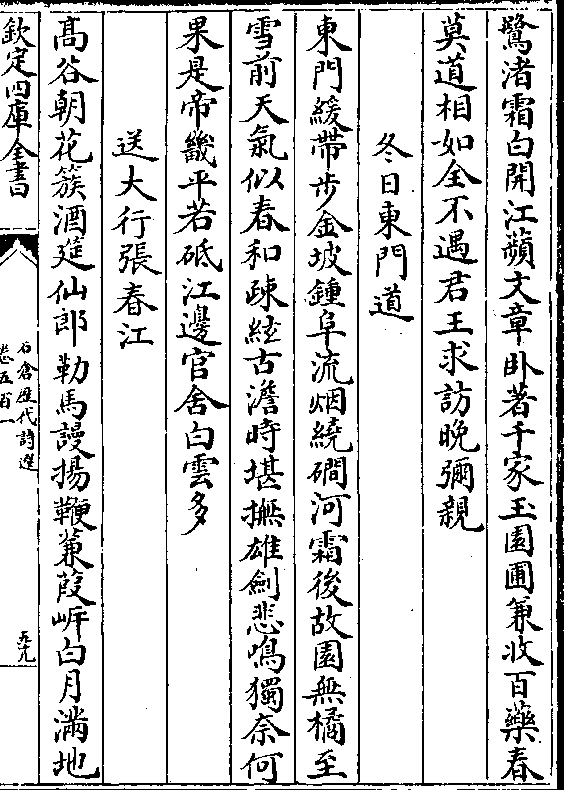 鷺渚霜白開江蘋文章卧著千家玉園圃兼收百藥春
莫道相如全不遇君王求訪晩彌親
冬日東門道
東門緩帶步金坡鍾阜流烟繞磵河霜後故園無橘至
雪前天氣似春和疎絃古澹時堪撫雄劍悲鳴獨奈何
果是帝畿平若砥江邊官舍白雲多
送大行張春江
髙谷朝花簇酒筵仙郎勒馬謾揚鞭蒹葭岍白月滿地
欽定四庫全書
石倉歷代詩選
卷五百一
五十九